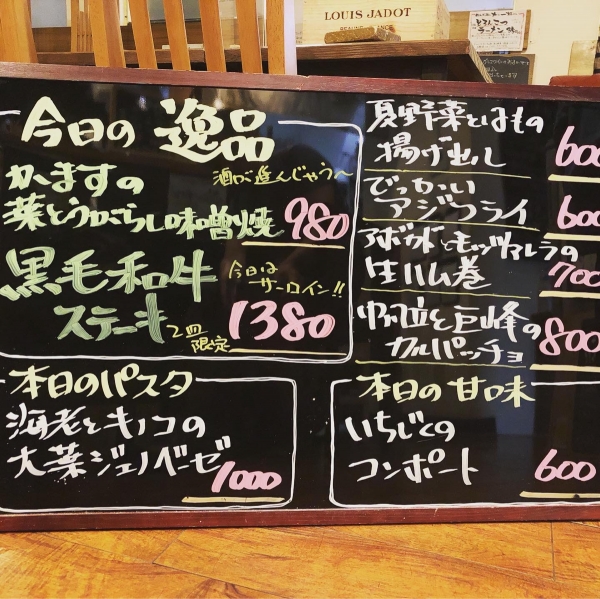 LOUIS JADOT
とろんこつ
ラーメン
今日の 逸品
かますの
酒が進んじゃう〜
葉とうがらし味噌焼 980
黒毛和牛
今日は
サーロイン!!
ステーキ
2皿
限定
1380
本日のパスタ
海老とキノコの
大葉ジェノベーゼ
1000
夏野菜とはもの
揚げ出し 600
でっかい
アジフライ 600
アボカドとモッツァレラの
生ハム巻 700
帆立と巨峰の
カルパッチョ 800
本日の甘味
いちじくの
コンポート 600